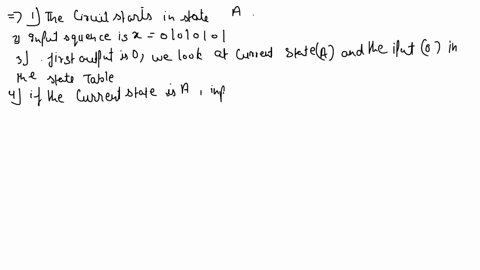 => 1) The Circuit starts in state A .
2) Input squence is x = 01010101
3) . first output is 0, we look at Current State(A) and the iput (0) in
the state Table
4) if the Current state is A , inp